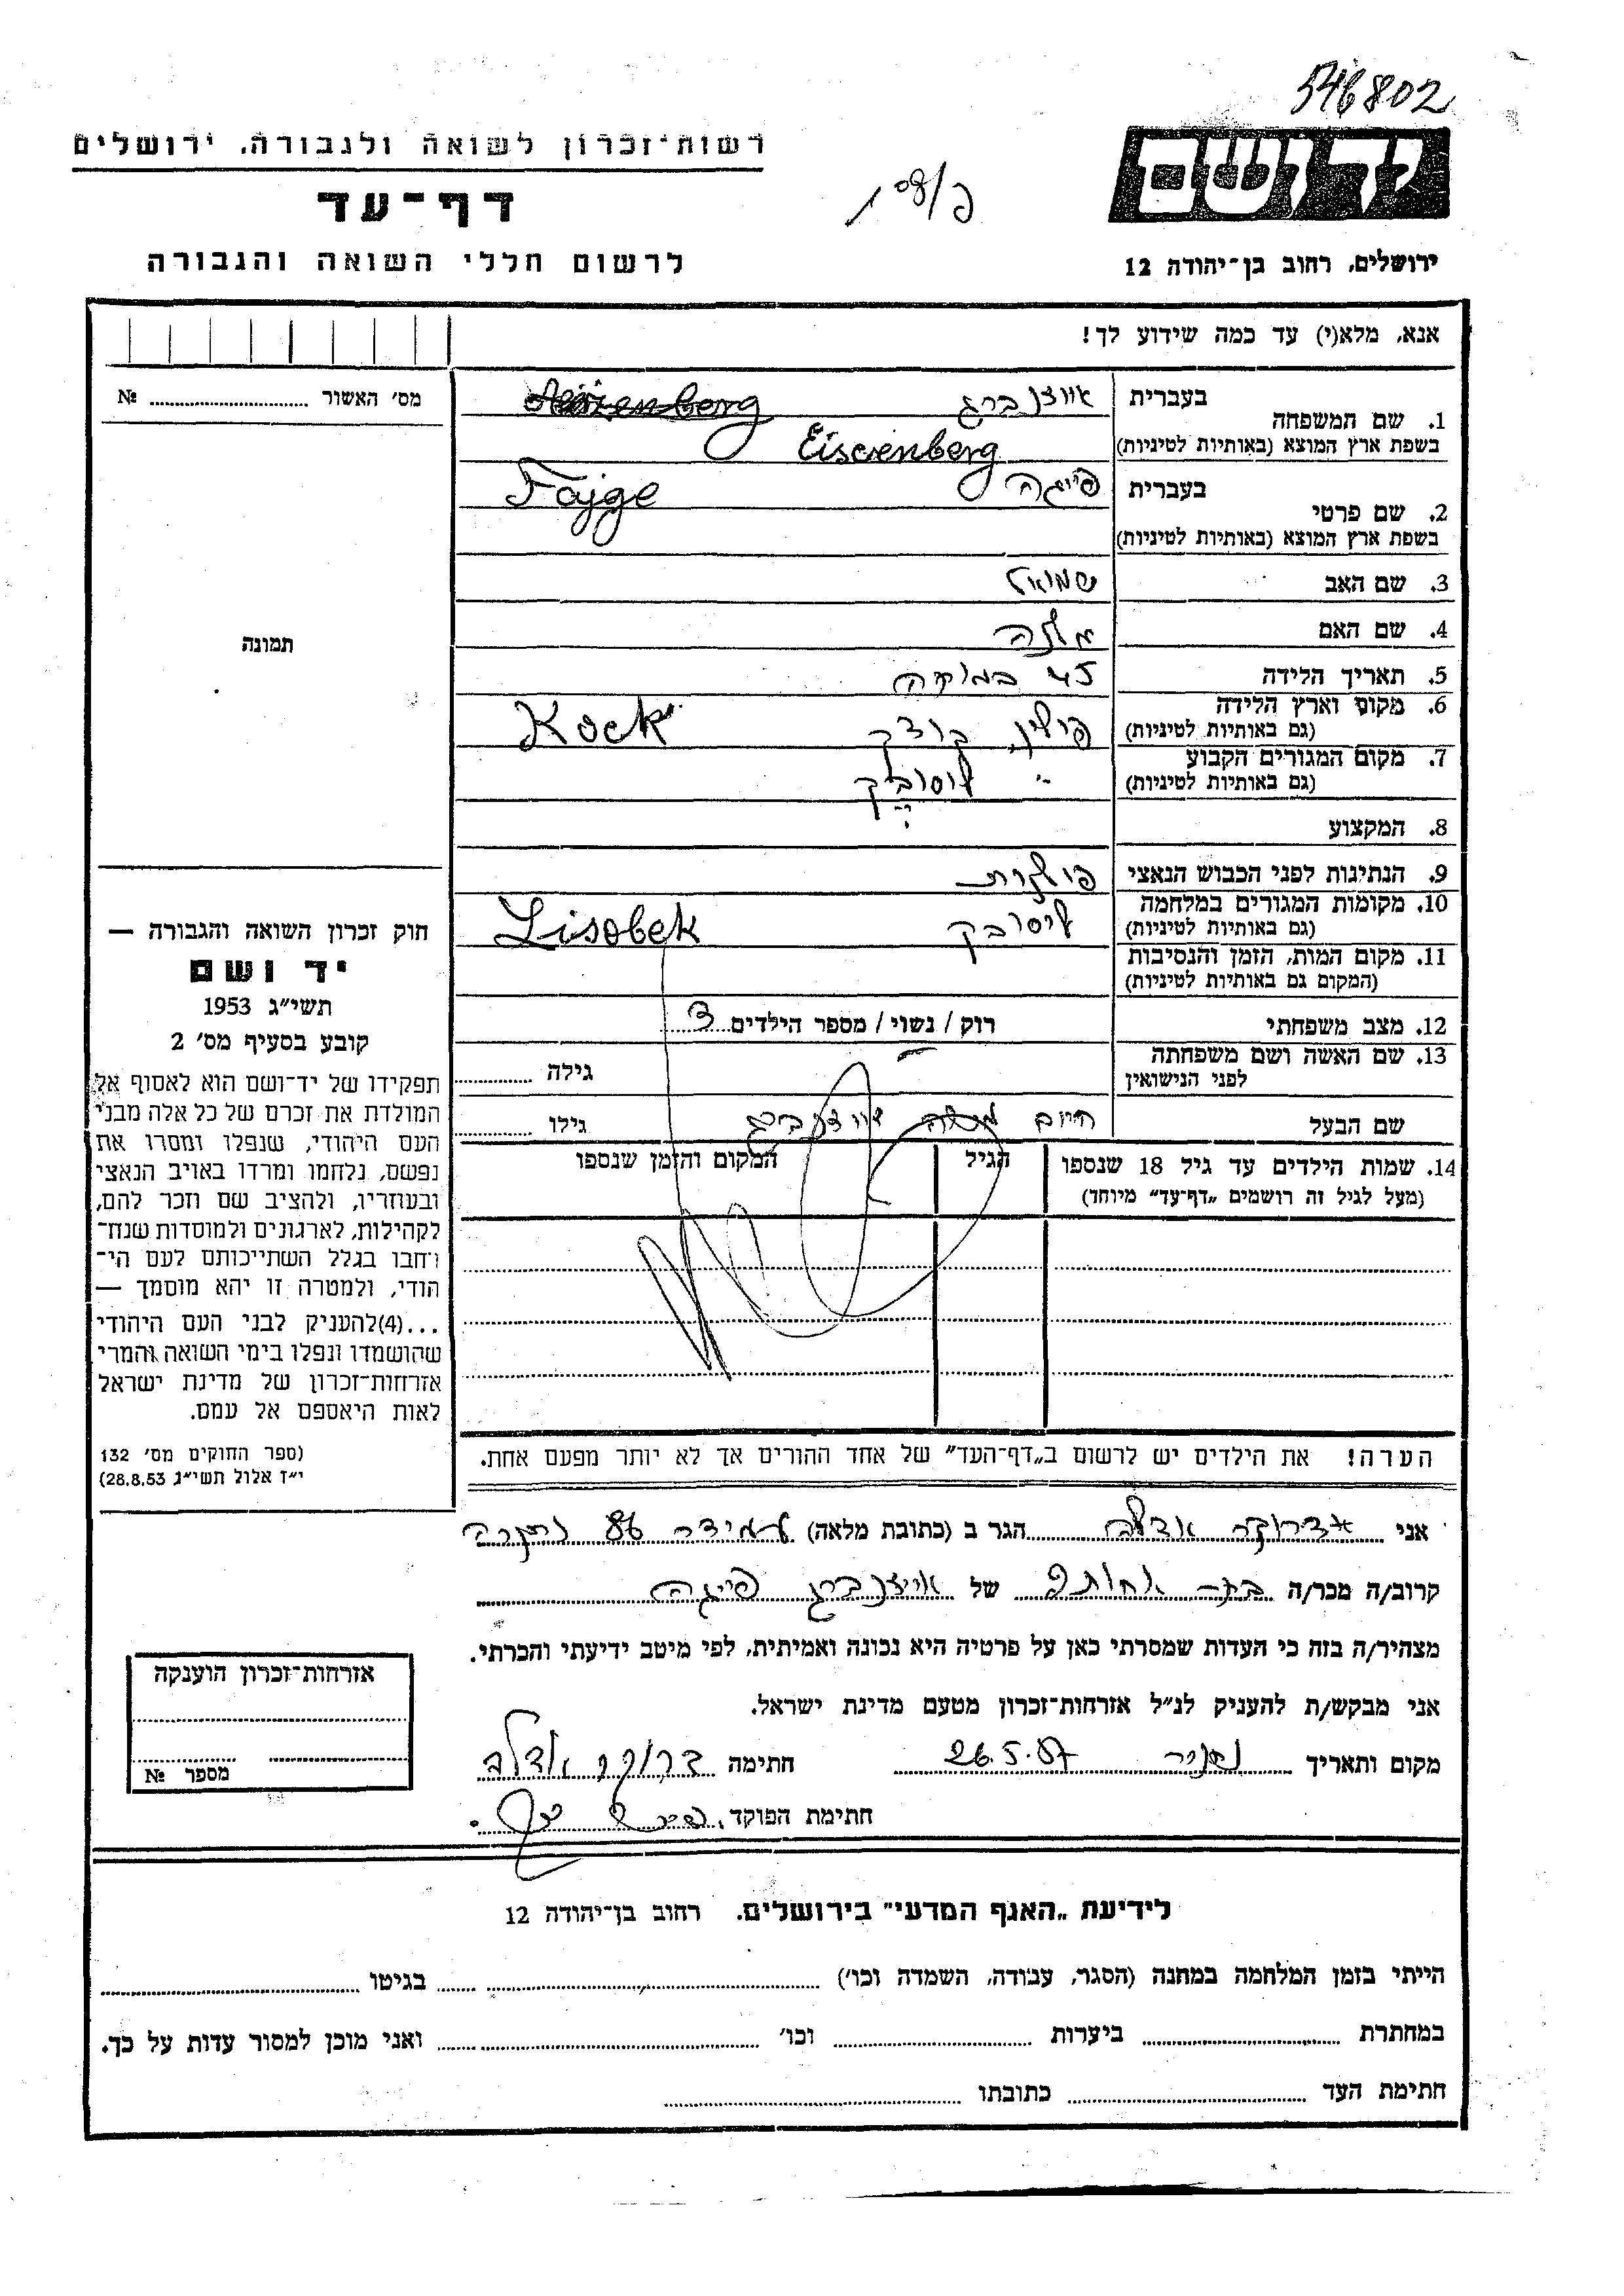 546802
רשות־זכרון לשואה ולגבורה, ירושלים
ידושם
דף־עד
לרשום חללי השואה והגבורה
ירושלים, רחוב בן־יהודה 12
אנא, מלא(י) עד כמה שידוע לך!
מס' האשור № 
1. שם המשפחה
בעברית
בשפת ארץ המוצא (באותיות לטיניות)
Eisenberg
2. שם פרטי
בעברית פייגה
בשפת ארץ המוצא (באותיות לטיניות)
Fajge
3. שם האב שמואל
4. שם האם
5. תאריך הלידה 45
6. מקום וארץ הלידה
(גם באותיות לטיניות)
פולין, קוצק Kock
7. מקום המגורים הקבוע
(גם באותיות לטיניות)
" ליסובק
8. המקצוע
9. הנתינות לפני הכבוש הנאצי פולנית
10. מקומות המגורים במלחמה
(גם באותיות לטיניות)
ליסובק Lisobek
11. מקום המות, הזמן והנסיבות
(המקום גם באותיות לטיניות)
12. מצב משפחתי
רוק / נשוי / מספר הילדים 3
13. שם האשה ושם משפחתה
לפני הנישואין
גילה
שם הבעל חיים משה אייזנברג גילו
14. שמות הילדים עד גיל 18 שנספו
(מעל לגיל זה רושמים „דף־עד" מיוחד)
הגיל
המקום והזמן שנספו
תמונה
חוק זכרון השואה והגבורה —
יד ושם
תשי"ג 1953
קובע בסעיף מס' 2
תפקידו של יד־ושם הוא לאסוף אל
המולדת את זכרם של כל אלה מבני
העם היהודי, שנפלו ומסרו את
נפשם, נלחמו ומרדו באויב הנאצי
ובעוזריו, ולהציב שם וזכר להם,
לקהילות, לארגונים ולמוסדות שנח־
רבו בגלל השתייכותם לעם הי־
הודי, ולמטרה זו יהא מוסמך —
...(4) להעניק לבני העם היהודי
שהושמדו ונפלו בימי השואה והמרי
אזרחות־זכרון של מדינת ישראל
לאות היאספם אל עמם.
(ספר החוקים מס' 132
י"ז אלול תשי"ג 28.8.53)
הערה! את הילדים יש לרשום ב„דף־העד" של אחד ההורים אך לא יותר מפעם אחת.
אני הגר ב (כתובת מלאה)
קרוב/ה מכר/ה בת אחותה של אייזנברג פייגה
מצהיר/ה בזה כי העדות שמסרתי כאן על פרטיה היא נכונה ואמיתית, לפי מיטב ידיעתי והכרתי.
אני מבקש/ת להעניק לנ"ל אזרחות־זכרון מטעם מדינת ישראל.
מקום ותאריך 26.5.87 חתימה
חתימת הפוקד
אזרחות־זכרון הוענקה
מספר №
לידיעת „האגף המדעי" בירושלים, רחוב בן־יהודה 12
הייתי בזמן המלחמה במחנה (הסגר, עבודה, השמדה וכו') בגיטו
במחתרת ביערות וכו' ואני מוכן למסור עדות על כך.
חתימת העד כתובתו